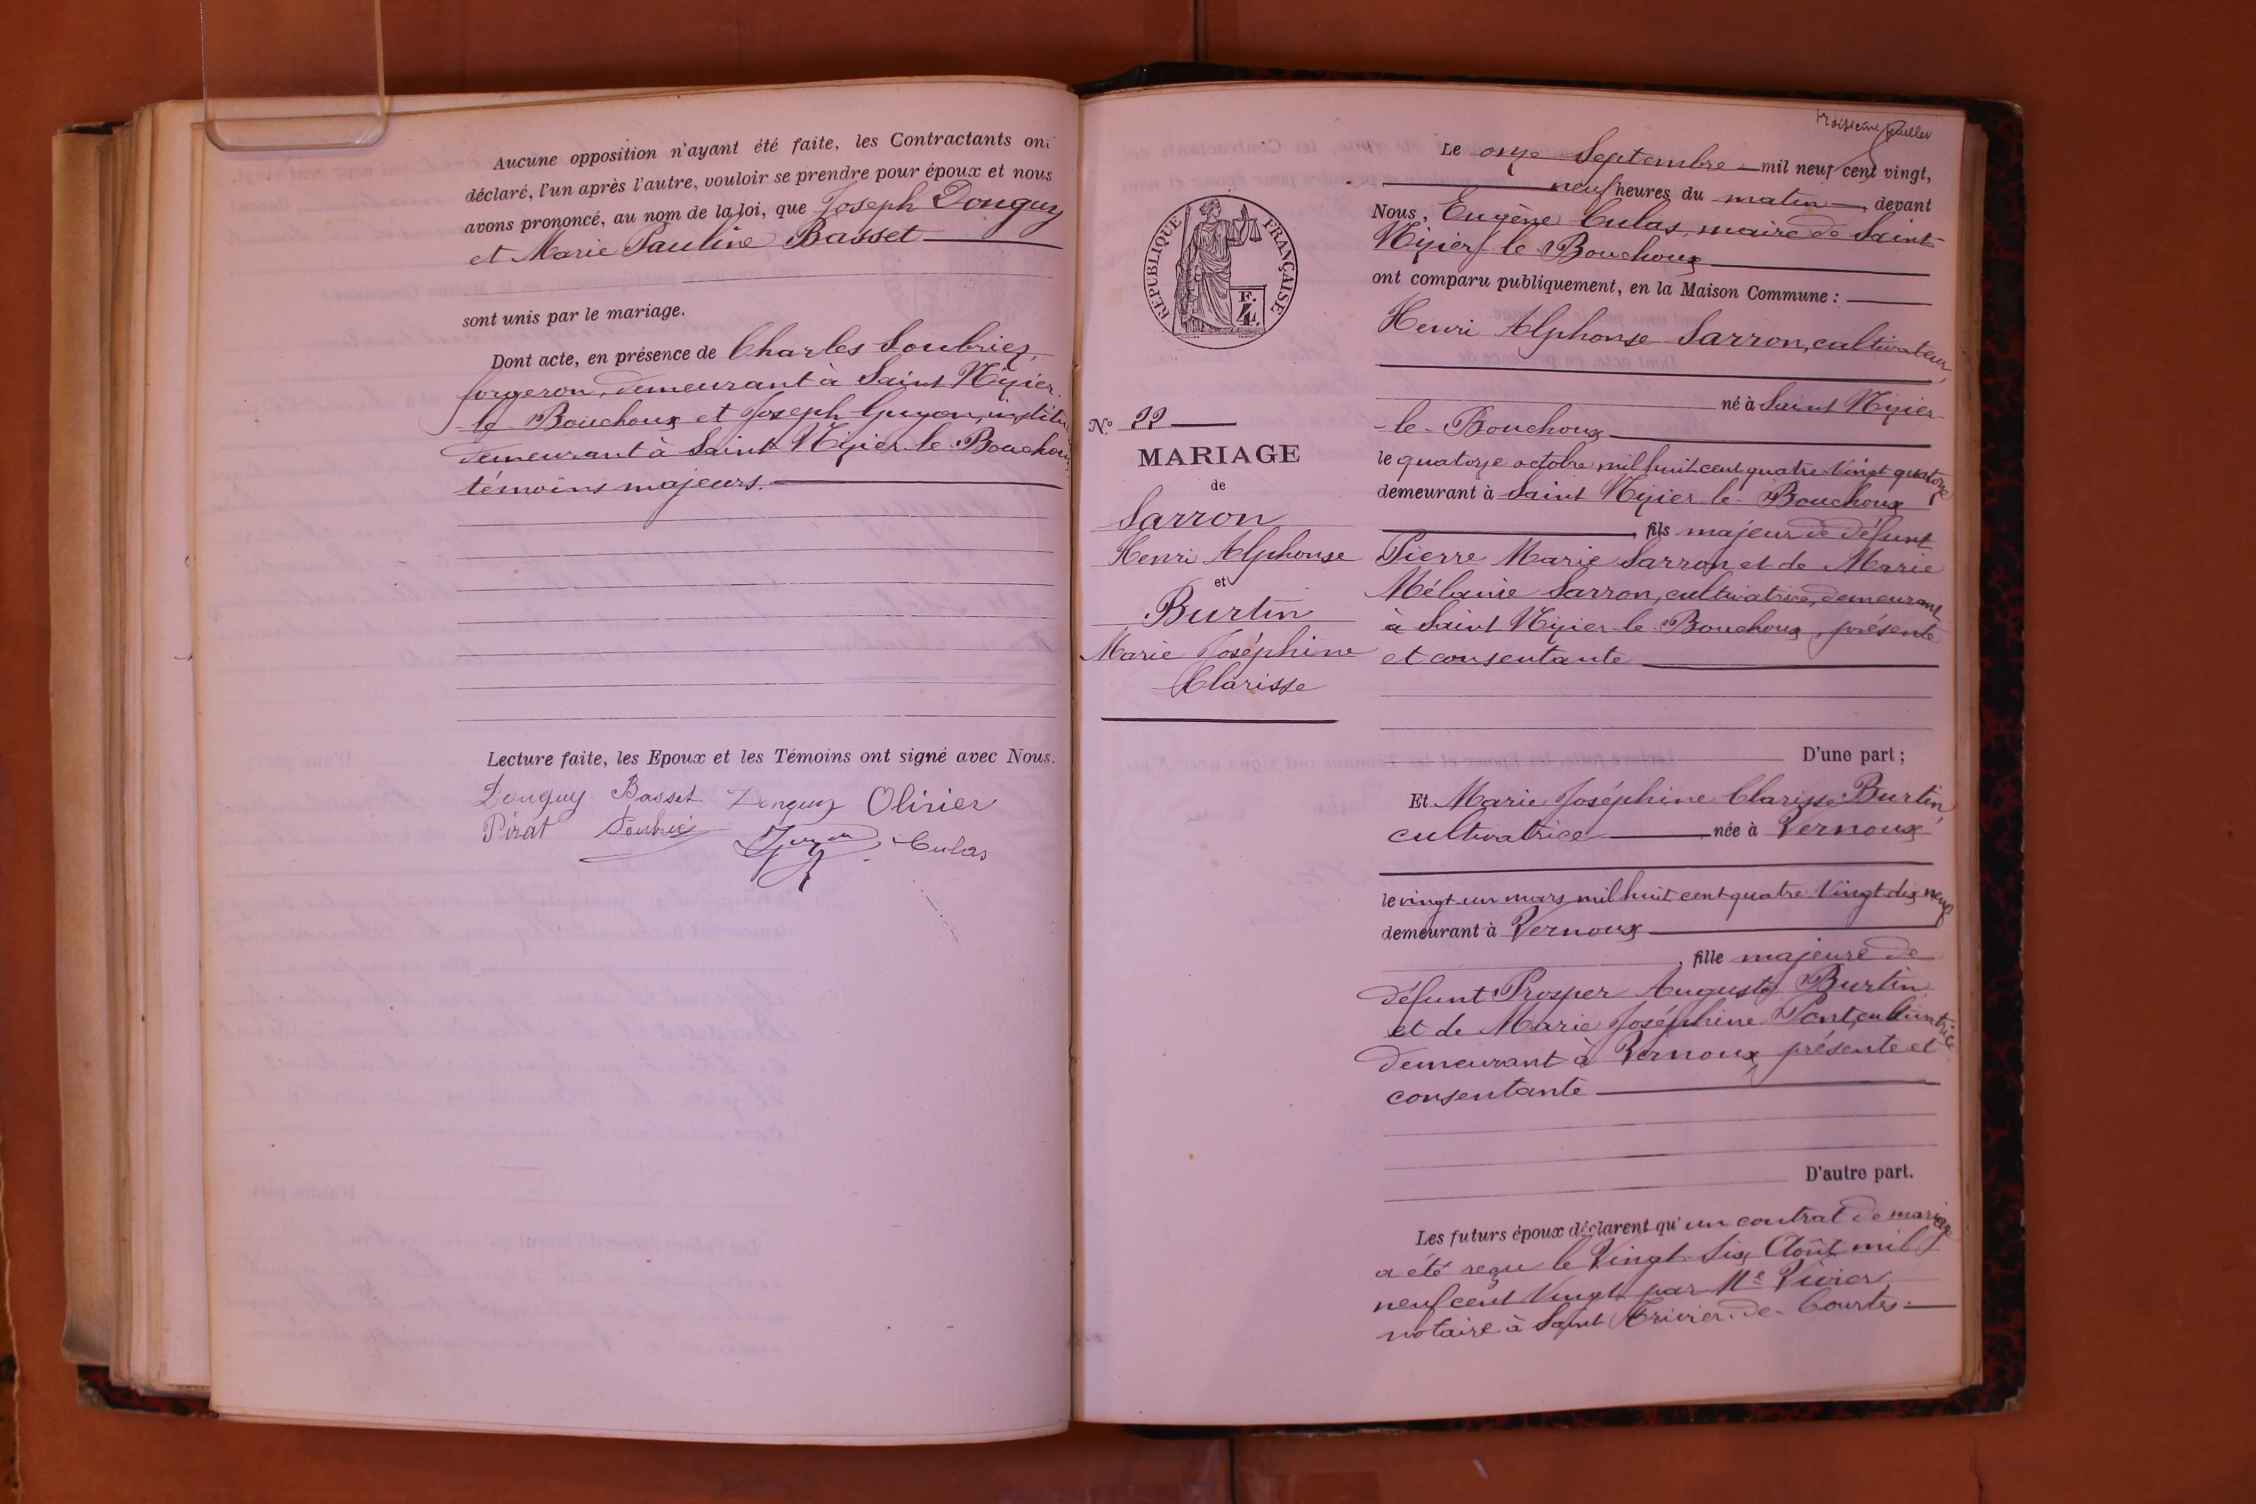 Aucune opposition n'ayant été faite, les Contractants ont
déclaré, l'un après l'autre, vouloir se prendre pour époux et nous
avons prononcé, au nom de la loi, que Joseph Donguy
et Marie Pauline Basset
sont unis par le mariage.
Dont acte, en présence de Charles Soubriez,
forgeron, demeurant à Saint Nizier
le Bouchoux et Joseph Guyon, institu
demeurant à Saint Nizier-le-Bouchoux
témoins majeurs.
Lecture faite, les Epoux et les Témoins ont signé avec Nous.
Donguy Basset Donguy Olivier
Pirat Guyon Culas
troisième feuillet
Le onze Septembre mil neuf cent vingt,
neuf heures du matin, devant
Nous, Eugène Culas, maire de Saint-
Nizier le Bouchoux
ont comparu publiquement, en la Maison Commune :
Henri Alphonse Sarron, cultivateur,
né à Saint Nizier-
-le-Bouchoux
le quatorze octobre mil huit cent quatre Vingt quatorze
demeurant à Saint Nizier le-Bouchoux
, fils majeur de défunt
Pierre Marie Sarron et de Marie
Mélanie Sarron, cultivatrice, demeurant
à Saint Nizier le-Bouchoux, présente
et consentante
D'une part ;
Et Marie Joséphine Clarisse Burtin,
cultivatrice née à Vernoux
le vingt-un mars mil huit cent quatre Vingt dix neuf
demeurant à Vernoux
, fille majeure de
défunt Prosper Auguste Burtin
et de Marie Joséphine Pont, cultivatrice
demeurant à Vernoux présente et
consentante
D'autre part.
Les futurs époux déclarent qu'un contrat de mariage
a été reçu le Vingt Six Août mil
neuf cent Vingt par Me Vivier
notaire à Saint Trivier-de-Courtes.
RÉPUBLIQUE FRANÇAISE
F. 4.
N.º 22
MARIAGE
de
Sarron
Henri Alphonse
et
Burtin
Marie Joséphine
Clarisse